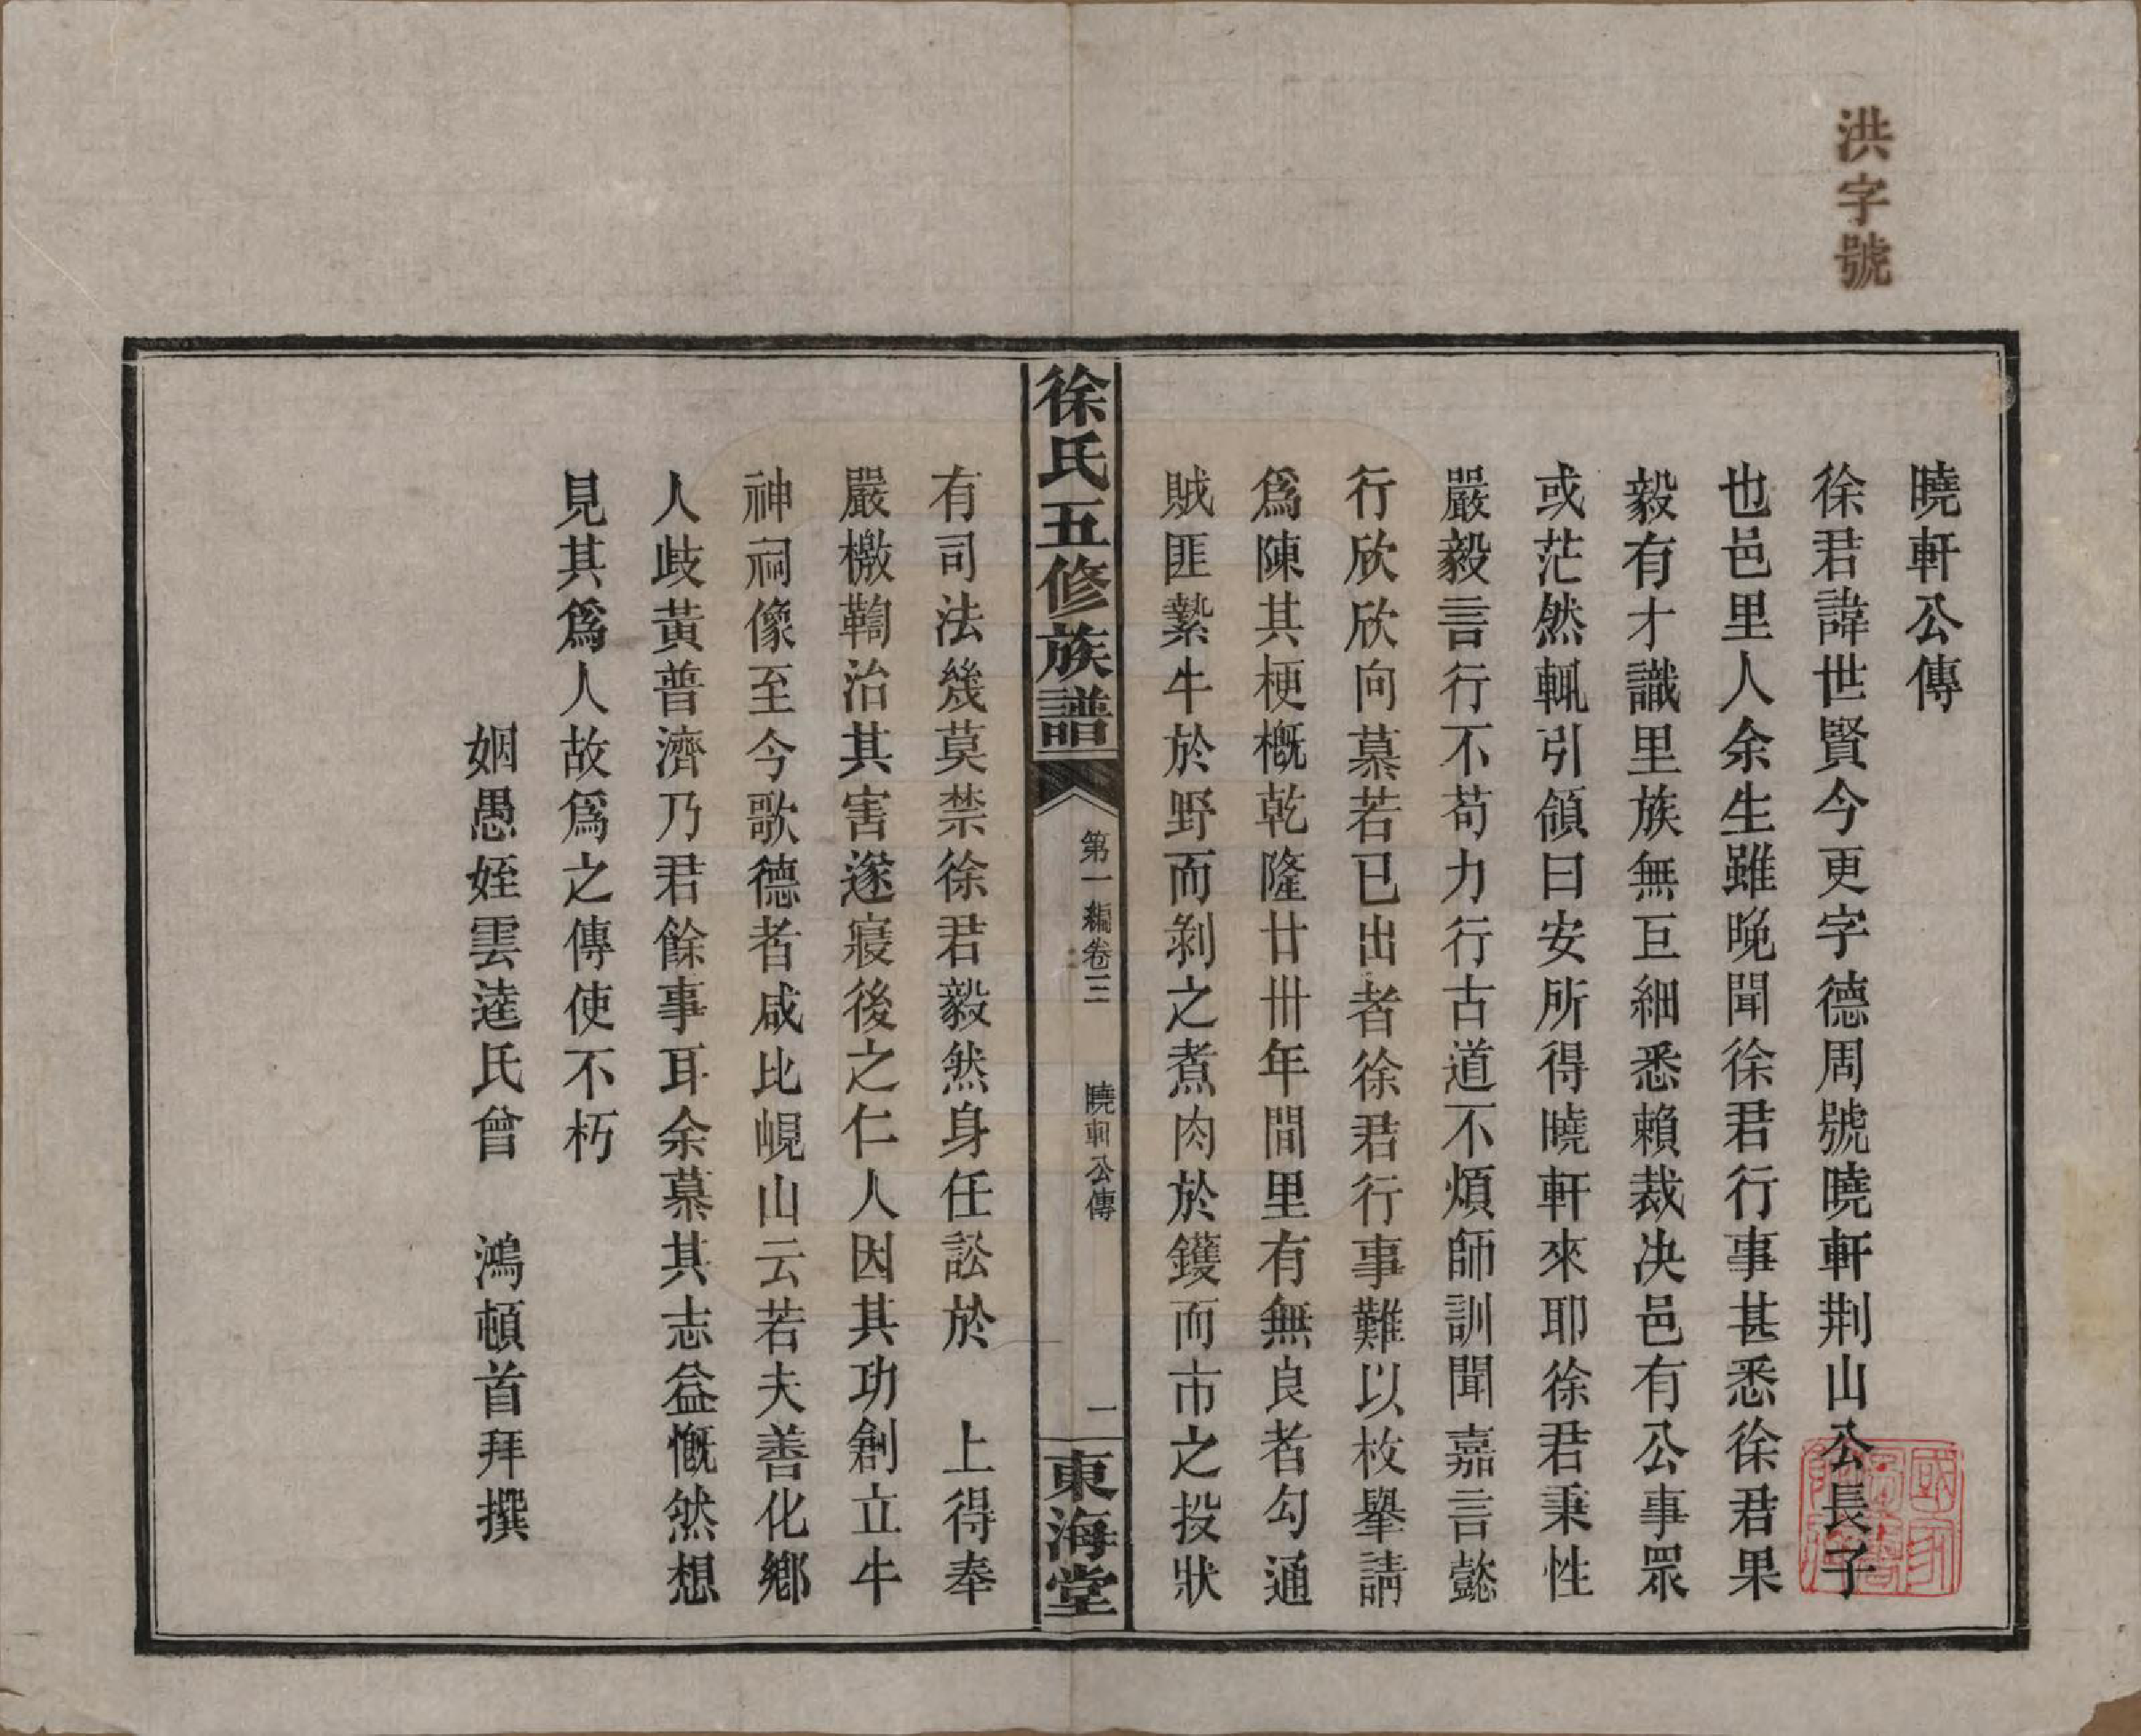 洪字號
曉軒公傳
徐君諱世賢今更字德周號曉軒荆山公長子
也邑里人余生雖晚聞徐君行事甚悉徐君果
毅有才識里族無巨細悉賴裁决邑有公事眾
或茫然輒引領曰安所得曉軒來耶徐君秉性
嚴毅言行不苟力行古道不煩師訓聞嘉言懿
行欣欣向慕若已出者徐君行事難以枚舉請
爲陳其梗槪乾隆廿卅年間里有無良者勾通
賊匪縶牛於野而剝之煮肉於鑊而市之投狀
徐氏五修族譜
第一編卷三
曉軒公傳
二
東海堂
有司法幾莫禁徐君毅然身任訟於 上得奉
嚴檄鞫治其害遂寢後之仁人因其功創立牛
神祠像至今歌德者咸比峴山云若夫善化鄉
人歧黃普濟乃君餘事耳余慕其志益慨然想
見其爲人故爲之傳使不朽
姻愚姪雲逵氏曾 鴻頓首拜撰